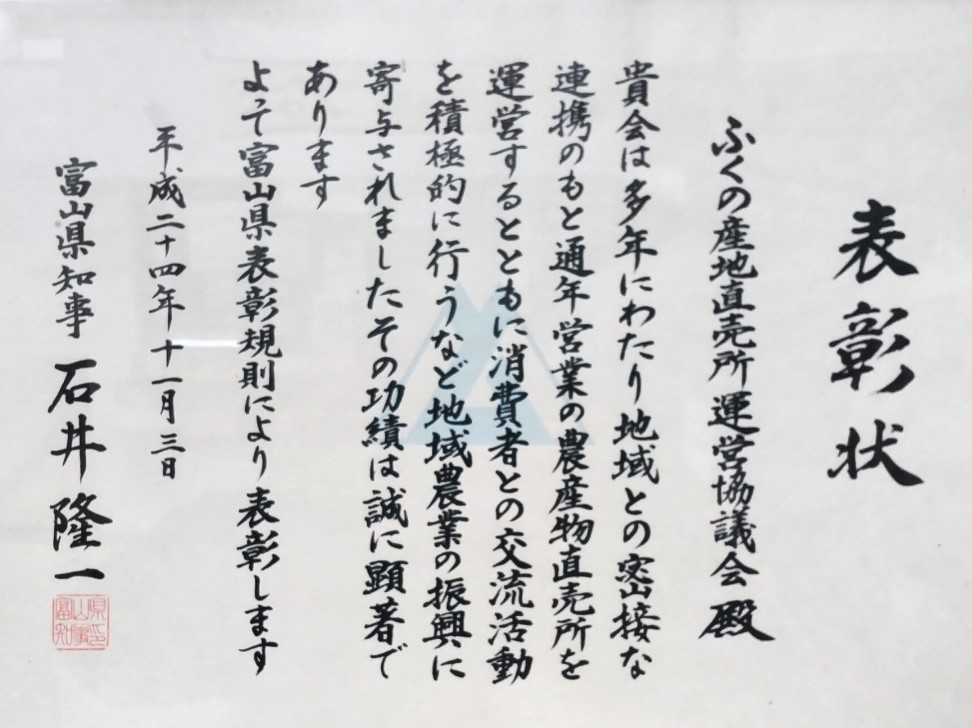 表彰状
ふくの産地直売所運営協議会殿
貴会は多年にわたり地域との密接な
連携のもと通年営業の農産物直売所を
運営するとともに消費者との交流活動
を積極的に行うなど地域農業の振興に
寄与されましたその功績は誠に顕著で
あります
よって富山県表彰規則により表彰します
平成二十四年十一月三日
富山県知事 石井隆一
富山県知事印